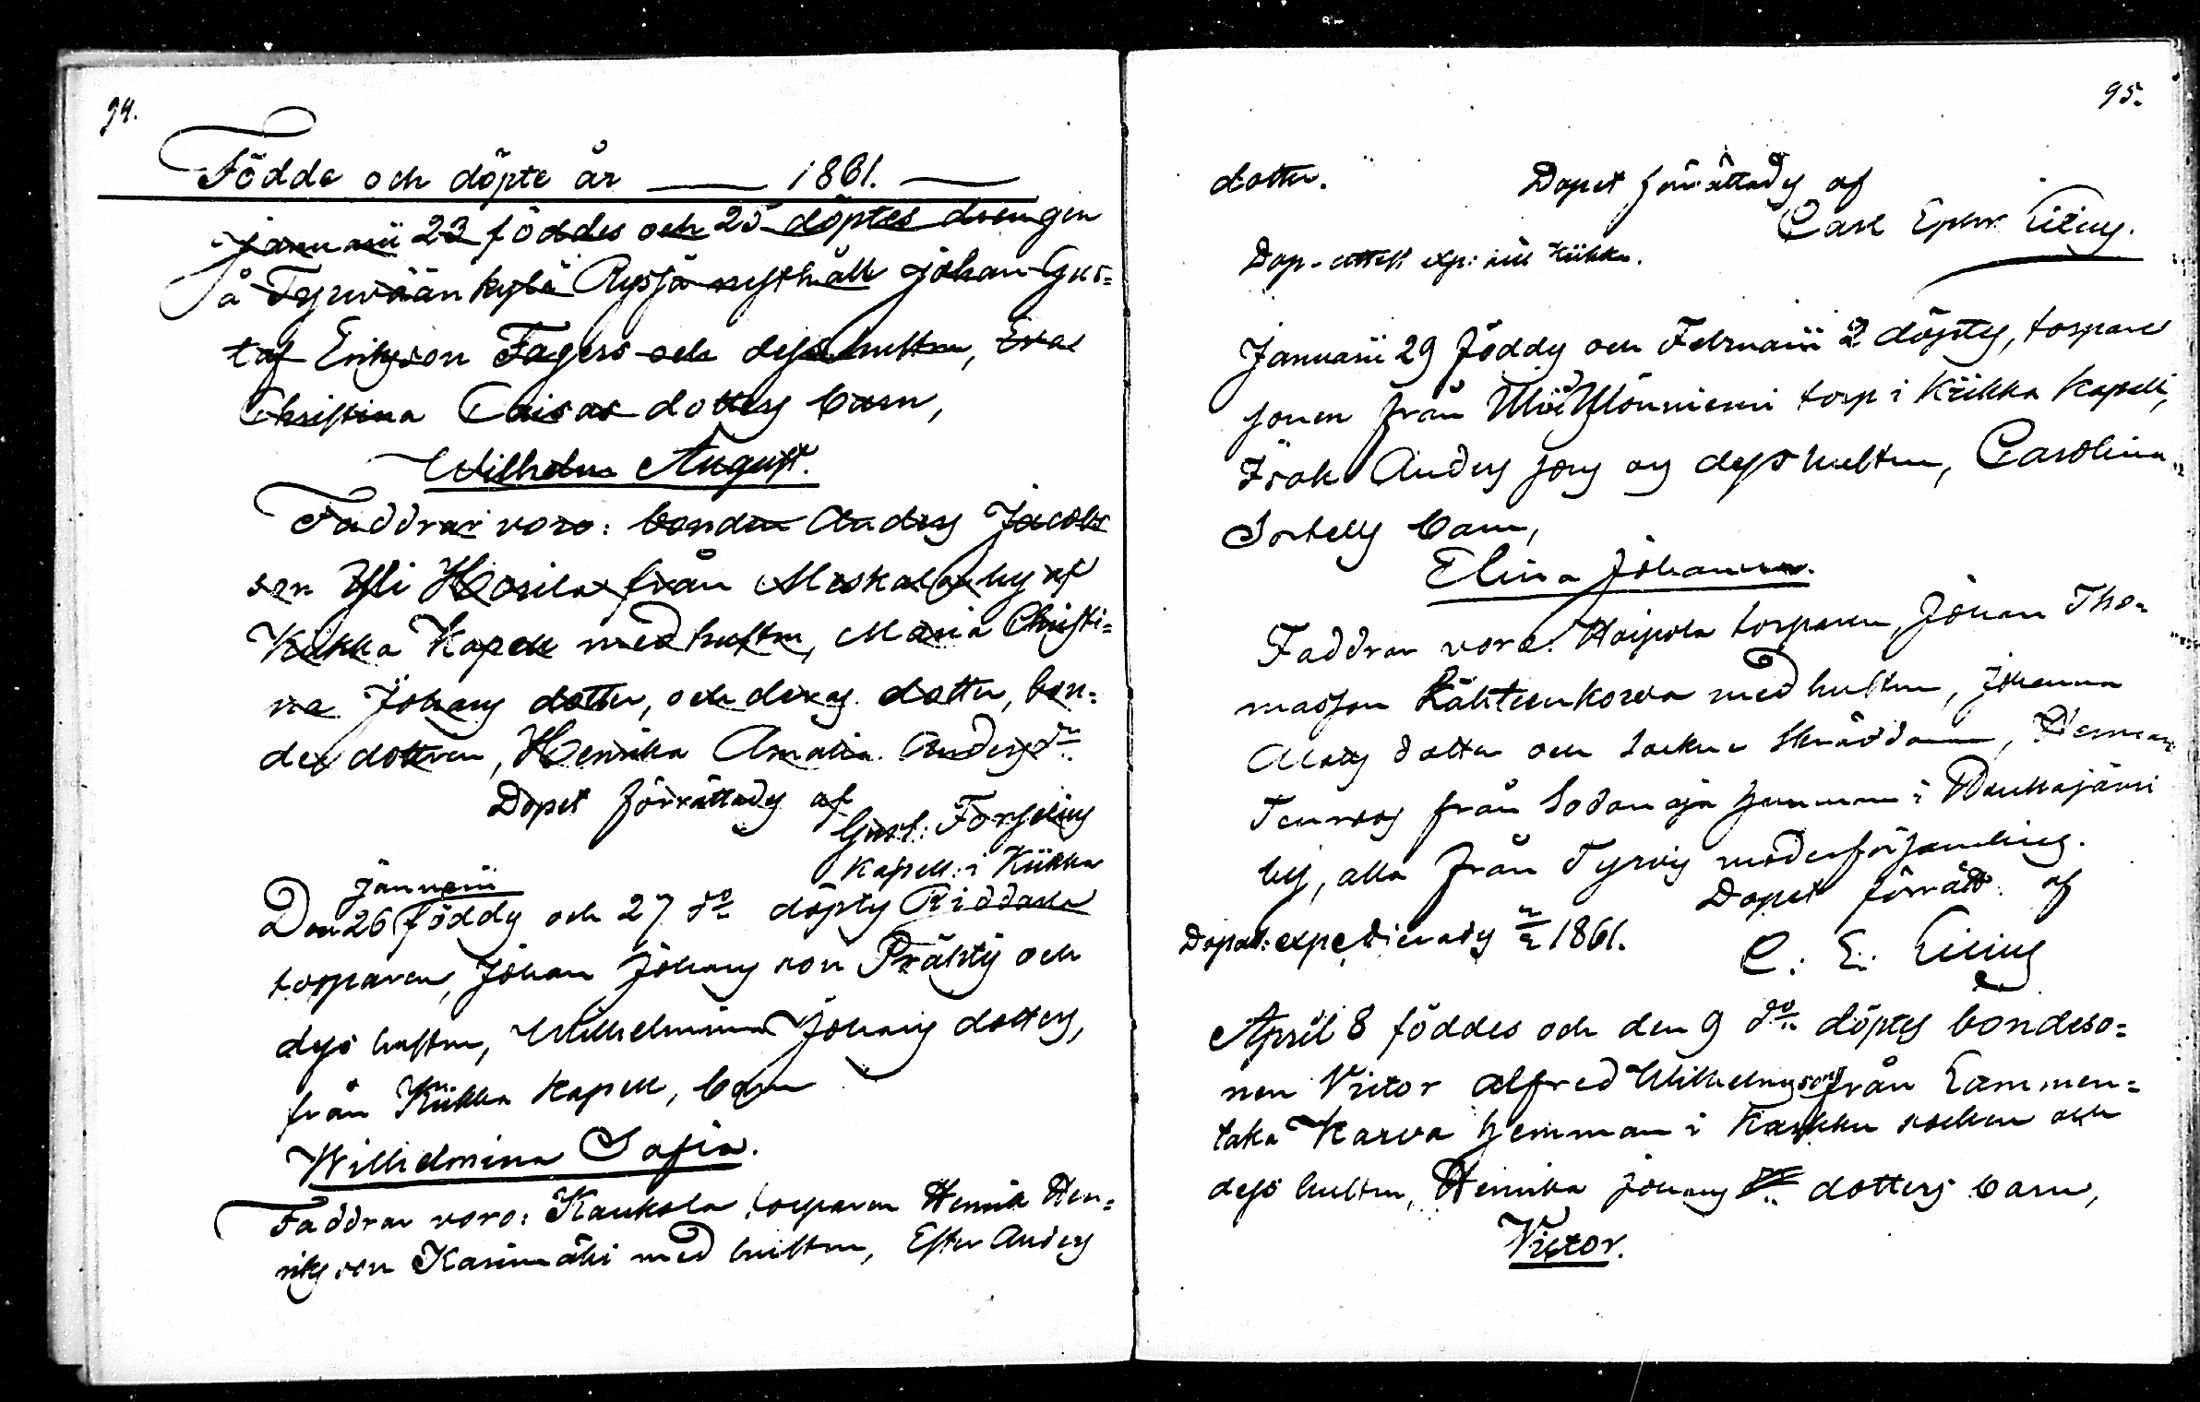 94.
Födde och döpte år 1861.
Januarii 23 föddes och 25 döptes drengen
å Tyrväänkylä Ryssjä rusthåll Johan Gus=
taf Eriksson Fagers och dess hustru, Eva
Christina Caisas dotters barn,
Wilhelm August.
Faddrar voro: bonden Anders Jacobs
son Yli Hosila från Meskala by af
Kiikka Kapell med hustru, Maria Christi=
na Johans dotter, och deras dotter, bon=
de dottren, Henrika Amalia Anders dr.
Dopet förrättades af
Gust: Forselius
Kapell: i Kiikka
Januarii
Den 26 föddes och 27 do döptes Riddala
torparen, Johan Johans son Prähty och
dess hustru, Wilhelmina Johans dotters,
från Kiikka Kapell, barn
Wilhelmina Sofia.
Faddrar voro: Kaukola torparen Henrik Hen=
riks son Karimäki med hustru, Ester Anders
95.
dotter. Dopet förrättades af
Carl Ephr. Lilius.
Dop-attest exp: till Kiikka.
Januarii 29 föddes och Februarii 2 döptes, torpare
sonen från Ylöumiemi torp i Kiikka Kapell,
Isak Anders sons og dess hustru, Carolina
Sorbells barn,
Elina Johanna.
Faddrar voro: Hoipola torparen, Johan Tho=
masson Lähteenkorva med hustru, Johanna
Mats dotter och socken skräddaren, Herman
från hemman i Roukajärvi
by, alla från Tyrvis moderförsamling.
Dopet förrätt. af
Dopat: expedierades 1861.
C. E. Lilius
April 8 föddes och den 9 do döptes bondeso=
nen Victor Alfred Wilhelms son från Lammen=
taka Karva hemman i Karkku socken och
dess hustru, Henrika Johans dotters barn,
Victor.